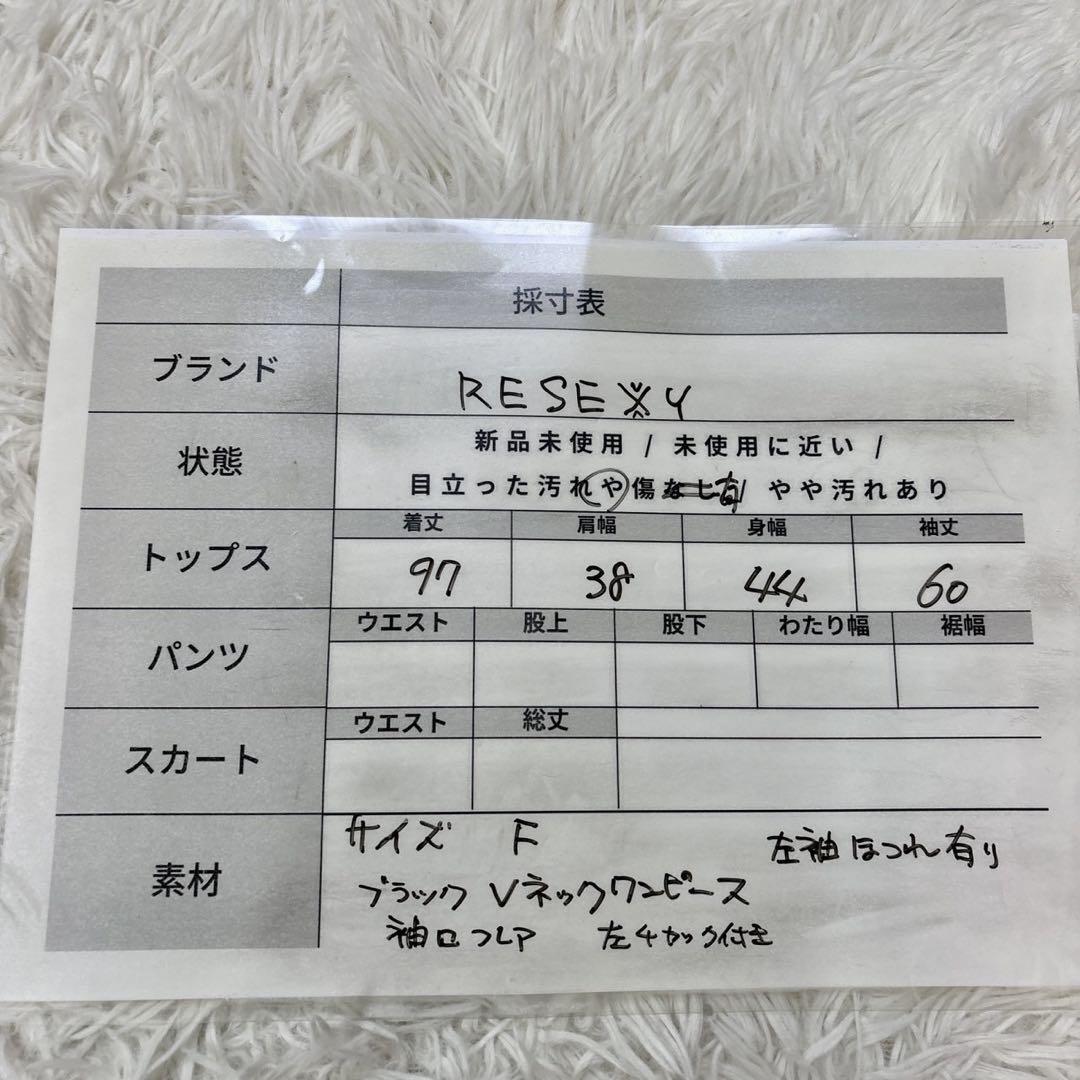 採寸表
ブランド RESEXXY
状態 新品未使用 / 未使用に近い /
目立った汚れや傷なし有/ やや汚れあり
トップス 着丈 肩幅 身幅 袖丈
97 38 44 60
パンツ ウエスト 股上 股下 わたり幅 裾幅
スカート ウエスト 総丈
素材 サイズ F 左袖ほつれ有り
ブラック Vネックワンピース
袖口フレア 左4カック付き